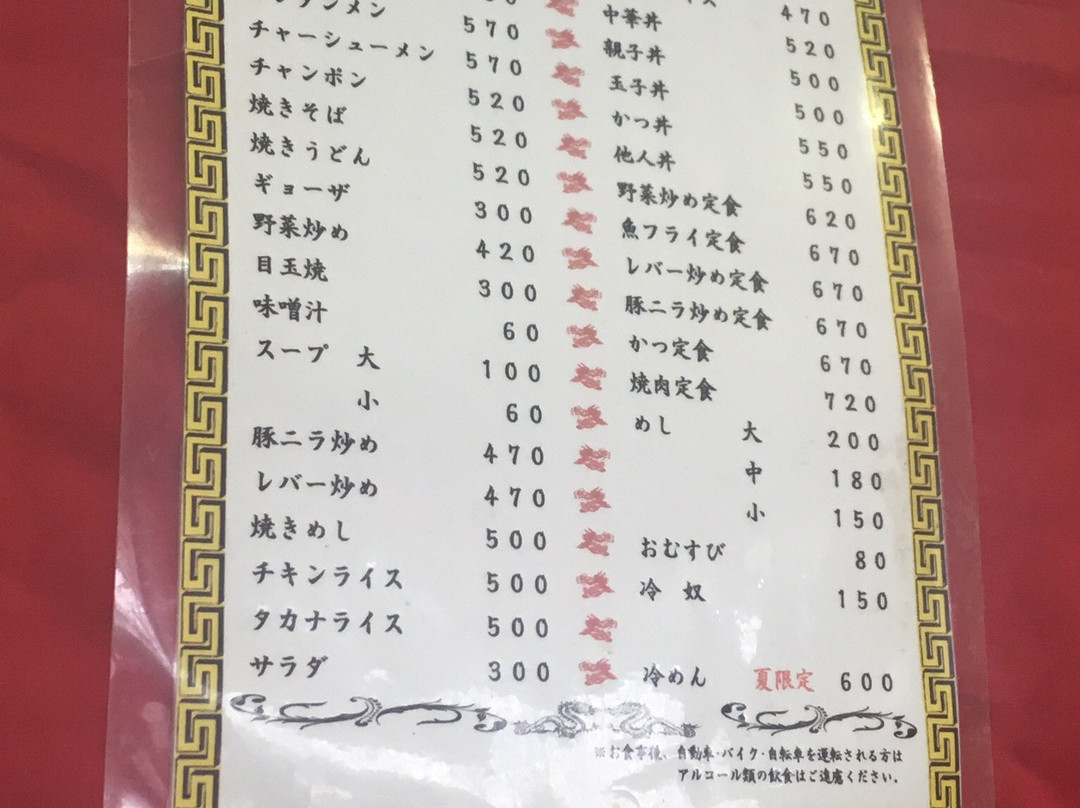 ンタンメン 570
チャーシューメン 570
チャンポン 520
焼きそば 520
焼きうどん 520
ギョーザ 300
野菜炒め 420
目玉焼 300
味噌汁 60
スープ 大 100
小 60
豚ニラ炒め 470
レバー炒め 470
焼きめし 500
チキンライス 500
タカナライス 500
サラダ 300
イス 470
中華丼 520
親子丼 500
玉子丼 500
かつ丼 550
他人丼 550
野菜炒め定食 620
魚フライ定食 670
レバー炒め定食 670
豚ニラ炒め定食 670
かつ定食 670
焼肉定食 720
めし 大 200
中 180
小 150
おむすび 80
冷 奴 150
冷めん 夏限定 600
※お食事後、自動車・バイク・自転車を運転される方は
アルコール類の飲食はご遠慮ください。